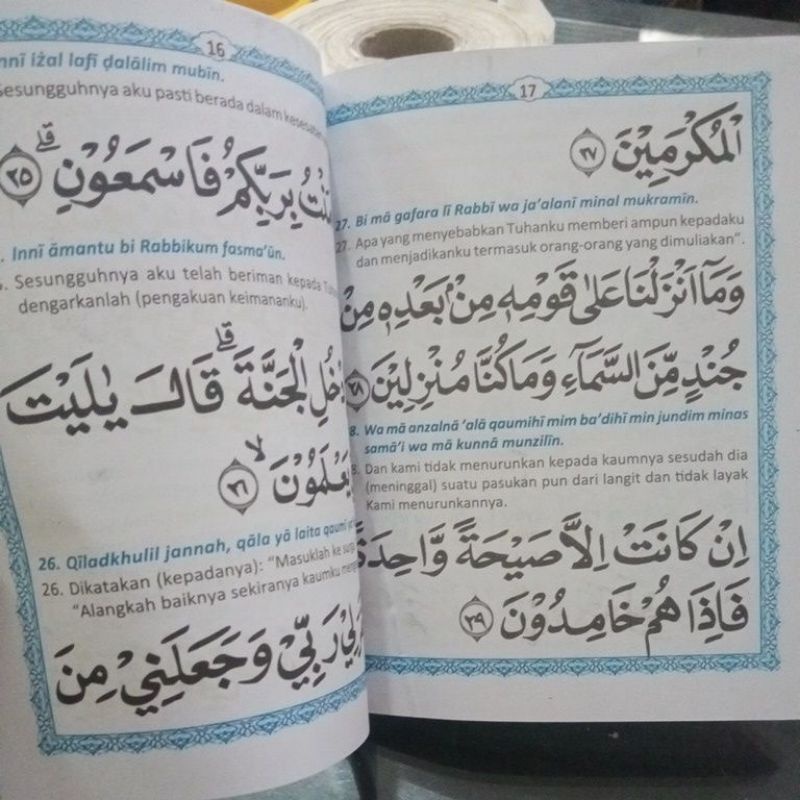 16
innī iżal lafī ḍalālim mubīn.
Sesungguhnya aku pasti berada dalam
بِرَبِّكُمْ فَاسْمَعُوْنِۗ ٢٥
Innī āmantu bi Rabbikum fasma'ūn.
Sesungguhnya aku telah beriman kepada
dengarkanlah (pengakuan keimananku).
الْجَنَّةَ ۗ قَالَ يٰلَيْتَ
يَعْلَمُوْنَۙ ٢٦
26. Qīladkhulil jannah, qāla yā laita qaumī
26. Dikatakan (kepadanya): "Masuklah ke surga
"Alangkah baiknya sekiranya kaumku
لِيْ رَبِّيْ وَجَعَلَنِيْ مِنَ
17
الْمُكْرَمِيْنَ ٢٧
27. Bi mā gafara lī Rabbī wa ja'alanī minal mukramīn.
27. Apa yang menyebabkan Tuhanku memberi ampun kepadaku
dan menjadikanku termasuk orang-orang yang dimuliakan".
وَمَآ اَنْزَلْنَا عَلٰى قَوْمِهٖ مِنْۢ بَعْدِهٖ مِنْ
جُنْدٍ مِّنَ السَّمَاۤءِ وَمَا كُنَّا مُنْزِلِيْنَ ٢٨
8. Wa mā anzalnā 'alā qaumihī mim ba'dihī min jundim minas
samā'i wa mā kunnā munzilīn.
8. Dan kami tidak menurunkan kepada kaumnya sesudah dia
(meninggal) suatu pasukan pun dari langit dan tidak layak
Kami menurunkannya.
اِنْ كَانَتْ اِلَّا صَيْحَةً وَّاحِدَةً
فَاِذَا هُمْ خَامِدُوْنَ ٢٩